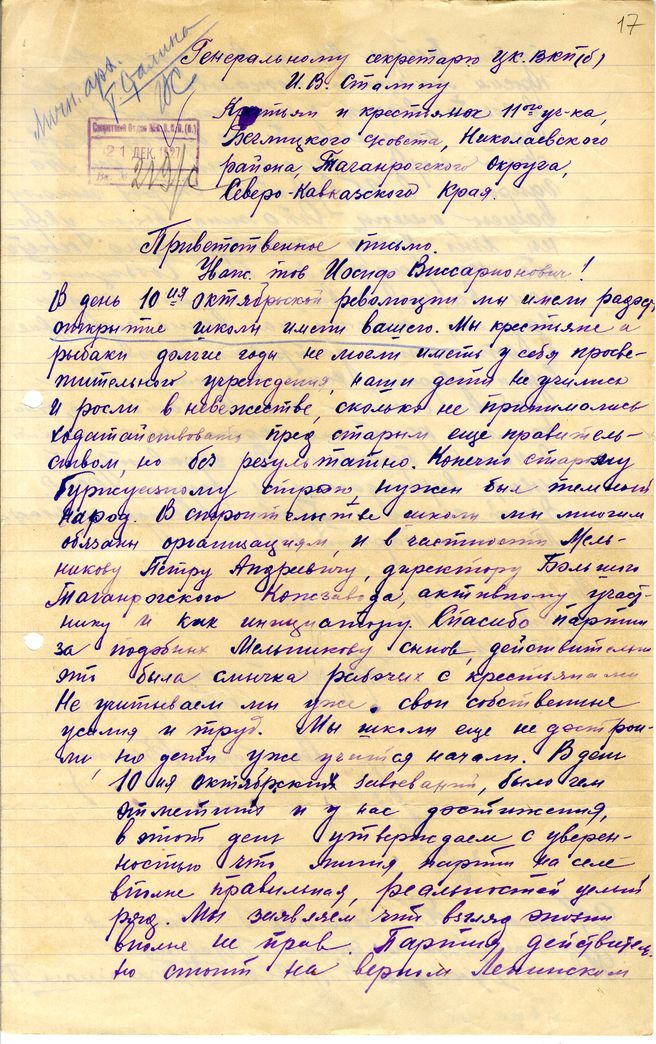 17
Личн. арх.
т. Сталина
Генеральному секретарю ЦК. ВКП(б)
И.В. Сталину
Крестьян и крестьянок 11ого уч-ка,
Беглицкого с/совета, Николаевского
района, Таганрогского Округа,
Северо-Кавказского Края.
Секретный Отдел Ц.К.В.К.П.(б.)
21 ДЕК. 1927
Приветственное письмо.
Уваж. тов Иосиф Виссарионович!
В день 10ия Октябрьской революции мы имели радость
открытие школы имени вашего. Мы крестьяне и
рыбаки долгие годы не могли иметь у себя просве-
тительного учреждения, наши дети не учились
и росли в невежестве, сколько не принимались
ходатайствовать пред старым еще правитель-
ством, но без результатно. Конечно старому
буржуазному строю, нужен был темный
народ. В строительстве школы мы многим
обязаны организациям, и в частности Мель-
никову Петру Андреевичу, директору Большого
Таганрогского Кожзавода, активному участ-
нику и как инициатору. Спасибо партии
за подобных Мельникову сынов, действительно
это была смычка рабочих с крестьянами
Не учитываем мы уже свои собственные
усилия и труд. Мы школы еще не дострои-
ли, но дети уже учится начали. В день
10 ия октябрьских завоеваний, было чем
отметить и у нас достижения,
в этот день утверждаем с уверен-
ностью что линия партии на селе
вполне правильная, реальностей целый
ряд. Мы заявляем что взгляд
вполне не прав. Партия действитель-
но стоит на верном Ленинском